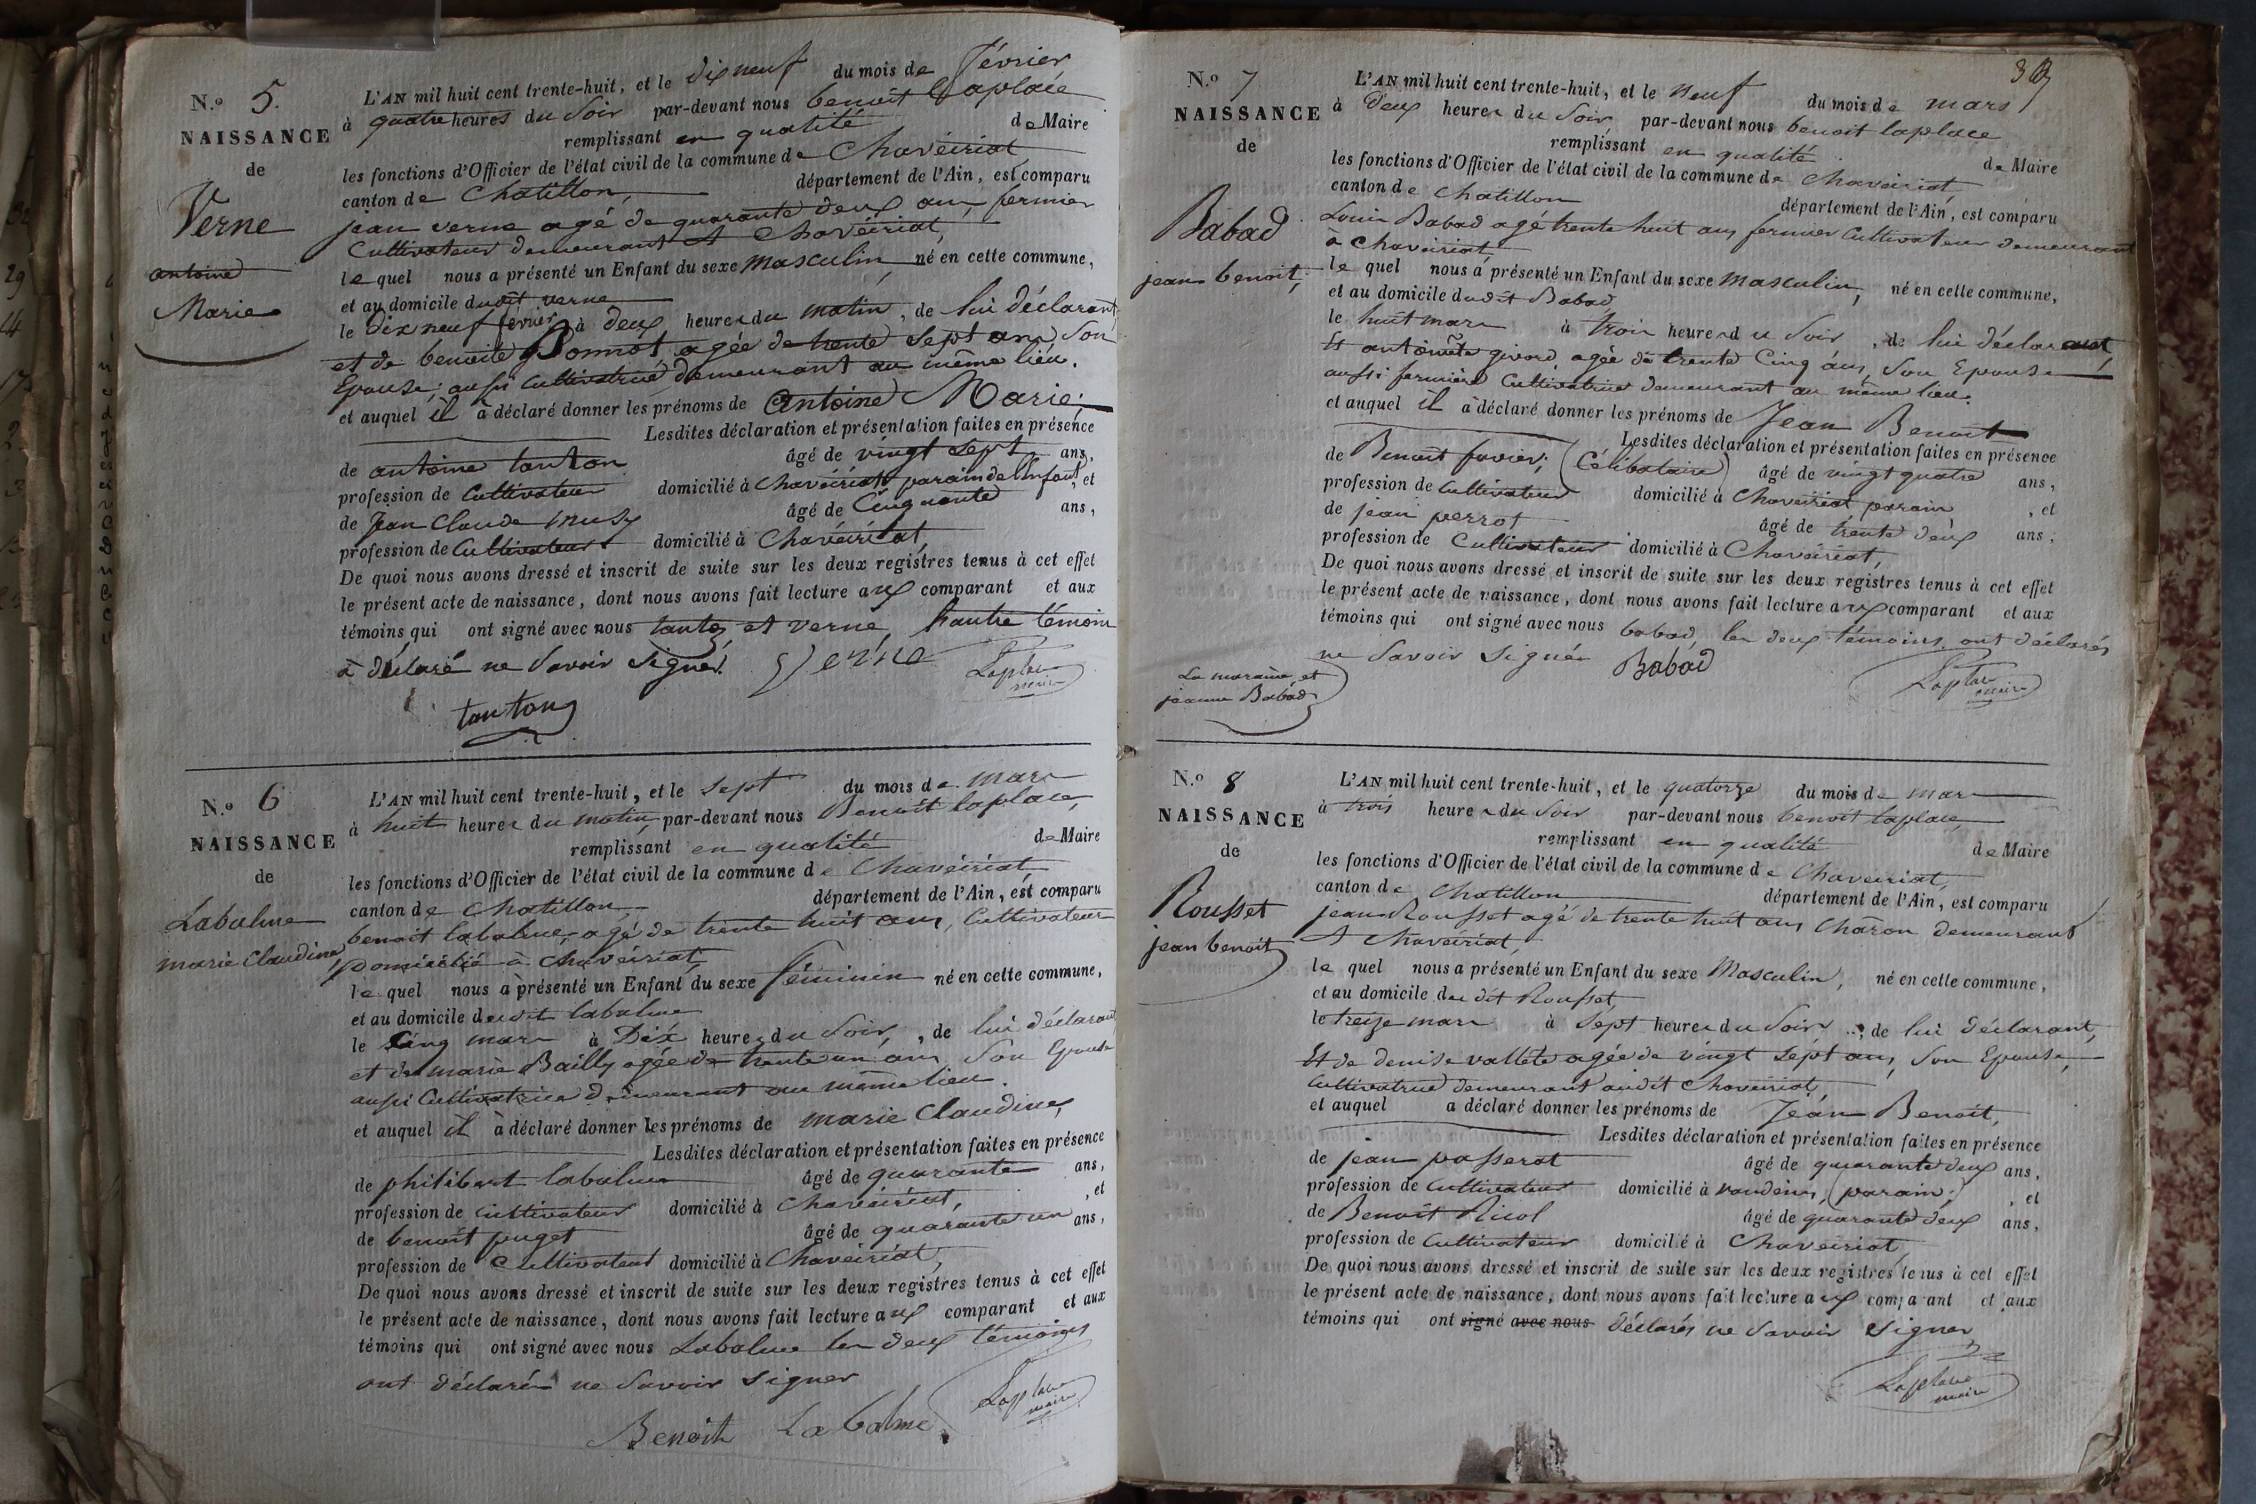 N.o 5.
NAISSANCE
de
Verne
antoine
Marie
L'AN mil huit cent trente-huit, et le dix neuf du mois de février
à quatre heures du soir par-devant nous benoit laplace
remplissant en qualité de Maire
les fonctions d'Officier de l'état civil de la commune de Chaveiriat
canton de Chatillon, département de l'Ain, est comparu
jean verne agé de quarante deux ans, fermier
Cultivateur demeurant A Chaveiriat,
le quel nous a présenté un Enfant du sexe masculin né en cette commune,
et au domicile dudit verne
le dix neuf fevrier à deux heures du matin, de lui déclarant
et de benoite Bonnot, agée de trente sept ans, son
Epouse; aussi cultivatrice demeurant au même lieu.
et auquel il à déclaré donner les prénoms de Antoine Marie;
Lesdites déclaration et présentation faites en présence
de antoine tanton âgé de vingt sept ans,
profession de Cultivateur domicilié à Chaveiriat parain de l'Enfant, et
de Jean Claude âgé de Cinquante ans,
profession de Cultivateur domicilié à Chaveiriat,
De quoi nous avons dressé et inscrit de suite sur les deux registres tenus à cet effet
le présent acte de naissance, dont nous avons fait lecture aux comparant et aux
témoins qui ont signé avec nous tanton et verne, l'autre témoin
à déclaré ne savoir signer. Verne Laplace
maire
tanton
N.o 6
NAISSANCE
de
Labalme
marie Claudine
L'AN mil huit cent trente-huit, et le sept du mois de mars
à huit heures du matin, par-devant nous Benoit laplace,
remplissant en qualité de Maire
les fonctions d'Officier de l'état civil de la commune de Chaveiriat
canton de Chatillon, département de l'Ain, est comparu
benoit labalme, agé de trente huit ans, Cultivateur
Domicilié à Chaveiriat,
le quel nous à présenté un Enfant du sexe féminin né en cette commune,
et au domicile dudit labalme
le Cinq mars à Dix heures du soir, de lui déclarant
et de marie Bailly agée de trente un ans son Epouse
aussi Cultivatrice demeurant au même lieu.
et auquel il à déclaré donner les prénoms de marie Claudine,
Lesdites déclaration et présentation faites en présence
de philibert labalme âgé de quarante ans,
profession de cultivateur domicilié à Chaveiriat, , et
de benoit puget âgé de quarante un ans,
profession de Cultivateur domicilié à Chaveiriat,
De quoi nous avons dressé et inscrit de suite sur les deux registres tenus à cet effet
le présent acte de naissance, dont nous avons fait lecture aux comparant et aux
témoins qui ont signé avec nous Labalme les deux témoins
ont déclarés ne savoir signer
Benoit Labalme Laplace
maire
39
N.o 7
NAISSANCE
de
Babad
jean benoit;
L'AN mil huit cent trente-huit, et le neuf du mois de mars
à Deux heures du soir par-devant nous benoit laplace
remplissant en qualité de Maire
les fonctions d'Officier de l'état civil de la commune de Chaveiriat
canton de Chatillon département de l'Ain, est comparu
Louis Babad agé trente huit ans fermier Cultivateur demeurant
à Chaveiriat
le quel nous a présenté un Enfant du sexe masculin, né en cette commune,
et au domicile dudit Babad,
le huit mars à trois heures du soir, de lui déclarant,
Et antoinette givord agée de trente Cinq ans, son Epouse
aussi fermière Cultivatrice demeurant au même lieu.
et auquel il à déclaré donner les prénoms de Jean Benoit
Lesdites déclaration et présentation faites en présence
de Benoit favier; (Célibataire) âgé de vingt quatre ans,
profession de Cultivateur domicilié à Chaveiriat parain , et
de jean perrot âgé de trente deux ans,
profession de Cultivateur domicilié à Chaveiriat,
De quoi nous avons dressé et inscrit de suite sur les deux registres tenus à cet effet
le présent acte de naissance, dont nous avons fait lecture aux comparant et aux
témoins qui ont signé avec nous babad, les deux témoins ont déclarés
ne savoir signer Babad Laplace
maire
La maraine et
jeanne Babad
N.o 8
NAISSANCE
de
Rousset
jean benoit
L'AN mil huit cent trente-huit, et le quatorze du mois de mars
à trois heures du soir par-devant nous benoit laplace,
remplissant en qualité de Maire
les fonctions d'Officier de l'état civil de la commune de Chaveiriat,
canton de Chatillon département de l'Ain, est comparu
jean Rousset agé de trente huit ans Charon demeurant
A Chaveiriat,
le quel nous a présenté un Enfant du sexe Masculin, né en cette commune,
et au domicile du dit Rousset,
le treize mars à Sept heures du soir, de lui déclarant,
Et de denise vallete agée de vingt sept ans, son Epouse,
cultivatrice demeurant audit Chaveiriat,
et auquel a déclaré donner les prénoms de Jean Benoit,
Lesdites déclaration et présentation faites en présence
de jean passerat âgé de quarante deux ans,
profession de Cultivateur domicilié à vandeins, (parain;) , et
de Benoit Nicol âgé de quarante deux ans,
profession de Cultivateur domicilié à Chaveiriat
De quoi nous avons dressé et inscrit de suite sur les deux registres tenus à cet effet
le présent acte de naissance, dont nous avons fait lecture aux comparant et aux
témoins qui ont signé avec nous déclarés ne savoir signer
Laplace
maire